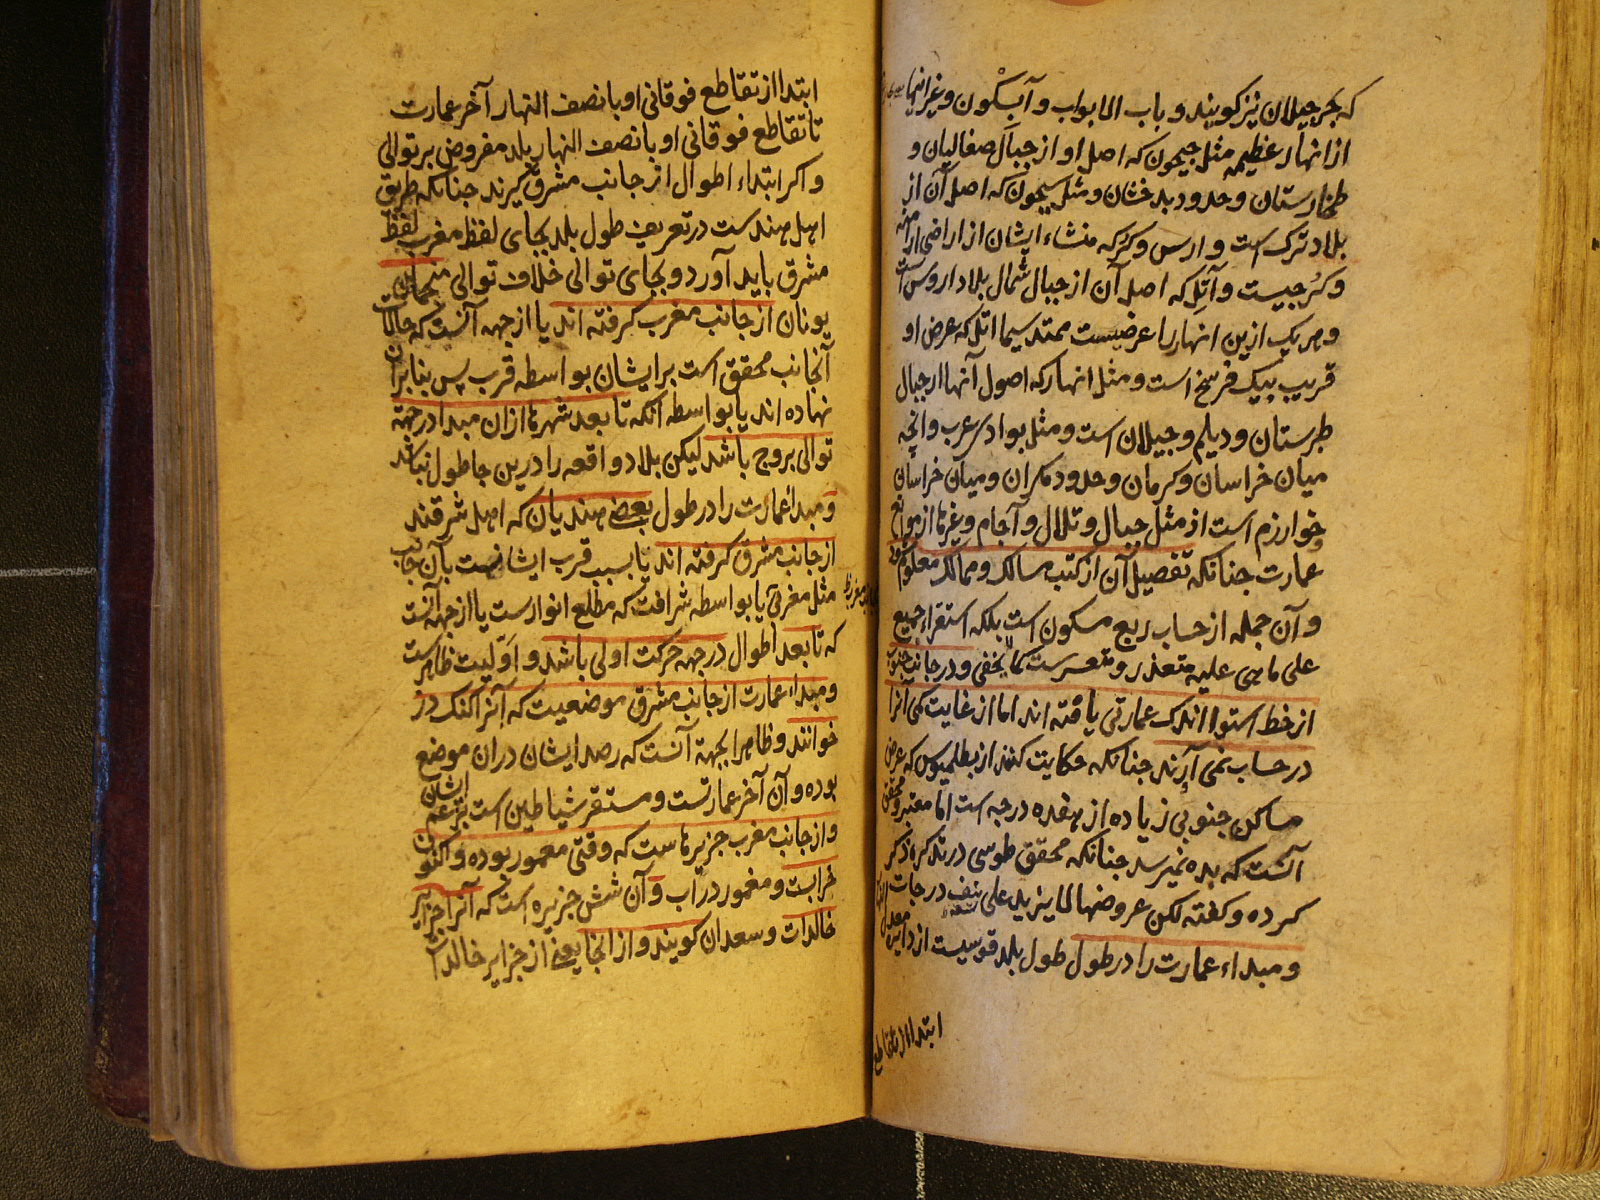 که بحر جیلان نیز کویند و باب الابواب و آبسکون و غیر اینها
از انهار عظیمه مثل جیحون که اصل او از جبال صغالیان و
طخارستان و حدود بدخشان و مثل سیحون که اصل آن از
بلاد ترک است و ارس و کر که منشاء ایشان از اراضی ارمنه
و کرجیست و آتل که اصل آن از جبال شمال بلاد اروس است
و هر یک ازین انهار را عرضیست ممتد سیما اتل که عرض او
قریب بیک فرسخ است و مثل انهار که اصول آنها از جبال
طبرستان و دیلم و جیلان است و مثل بوادی عرب و انچه
میان خراسان و کرمان و حدود مکران و میان خراسان
و خوارزم است از مثل جبال و تلال و آجام و غیرها از موانع
عمارت جنانکه تفصیل آن از کتب مسالک و ممالک معلوم شود
و آن جمله از حساب ربع مسکون است بلکه استقراء جمیع
علی ما هی علیه متعذر و متعسرست کما لا یخفی و در جانب جنوب
از خط استوا اندک عمارتی یافته اند اما از غایت کمی آنرا
در حساب نمی آرند جنانکه حکایت کنند از بطلمیوس که عرض
مساکن جنوبی زیاده از هفده درجه است اما معتبر و محقق
آنست که بده نمیرسد جنانکه محقق طوسی در تذکره ذکر
کرده و کفته لکن عروضها لا یزید علی درجات
و مبداء عمارت را در طول طول بلد قوسیست از دایره معدل
ابتدا از تقاطع
ابتدا از تقاطع فوقانی او با نصف النهار آخر عمارت
تا تقاطع فوقانی او با نصف النهار بلد مفروض بر توالی
و اکر ابتداء اطوال از جانب مشرق کیرند جنانکه طریق
اهل هندست در تعریف طول بلد بجای لفظ مغرب لفظ
مشرق باید آورد و بجای توالی خلاف توالی منجمان
یونان از جانب مغرب کرفته اند یا از جهه آنست که حالات
آنجانب محقق است بر ایشان بواسطه قرب پس بنا بران
نهاده اند یا بواسطه انکه تا بعد شهرها از ان مبدا در جهة
توالی بروج باشد لیکن بلاد واقعه را درین جا طول نباشد
و مبدا عمارت را در طول بعضی هندیان که اهل شرقند
از جانب مشرق کرفته اند یا بسبب قرب ایشانست بآن جانب
مثل مغربی یا بواسطه شرافت که مطلع انوارست یا از جهه آنست
که تا بعد اطوال در جهه حرکت اولی باشد و اولیت ظاهرست
و مبداء عمارت از جانب مشرق موضعیست که آنرا کنک دز
خوانند و ظاهرا بجهة آنست که رصد ایشان دران موضع
بوده و آن آخر عمارتست و مستقر شیاطین است بزعم ایشان
و از جانب مغرب جزیرهاست که وقتی معمور بوده و اکنون
خرابست و مغمور در آب و آن شش جزیره است که آنرا جزایر
خالدات و سعدان کویند و از انجا یعنی از جزایر خالدات